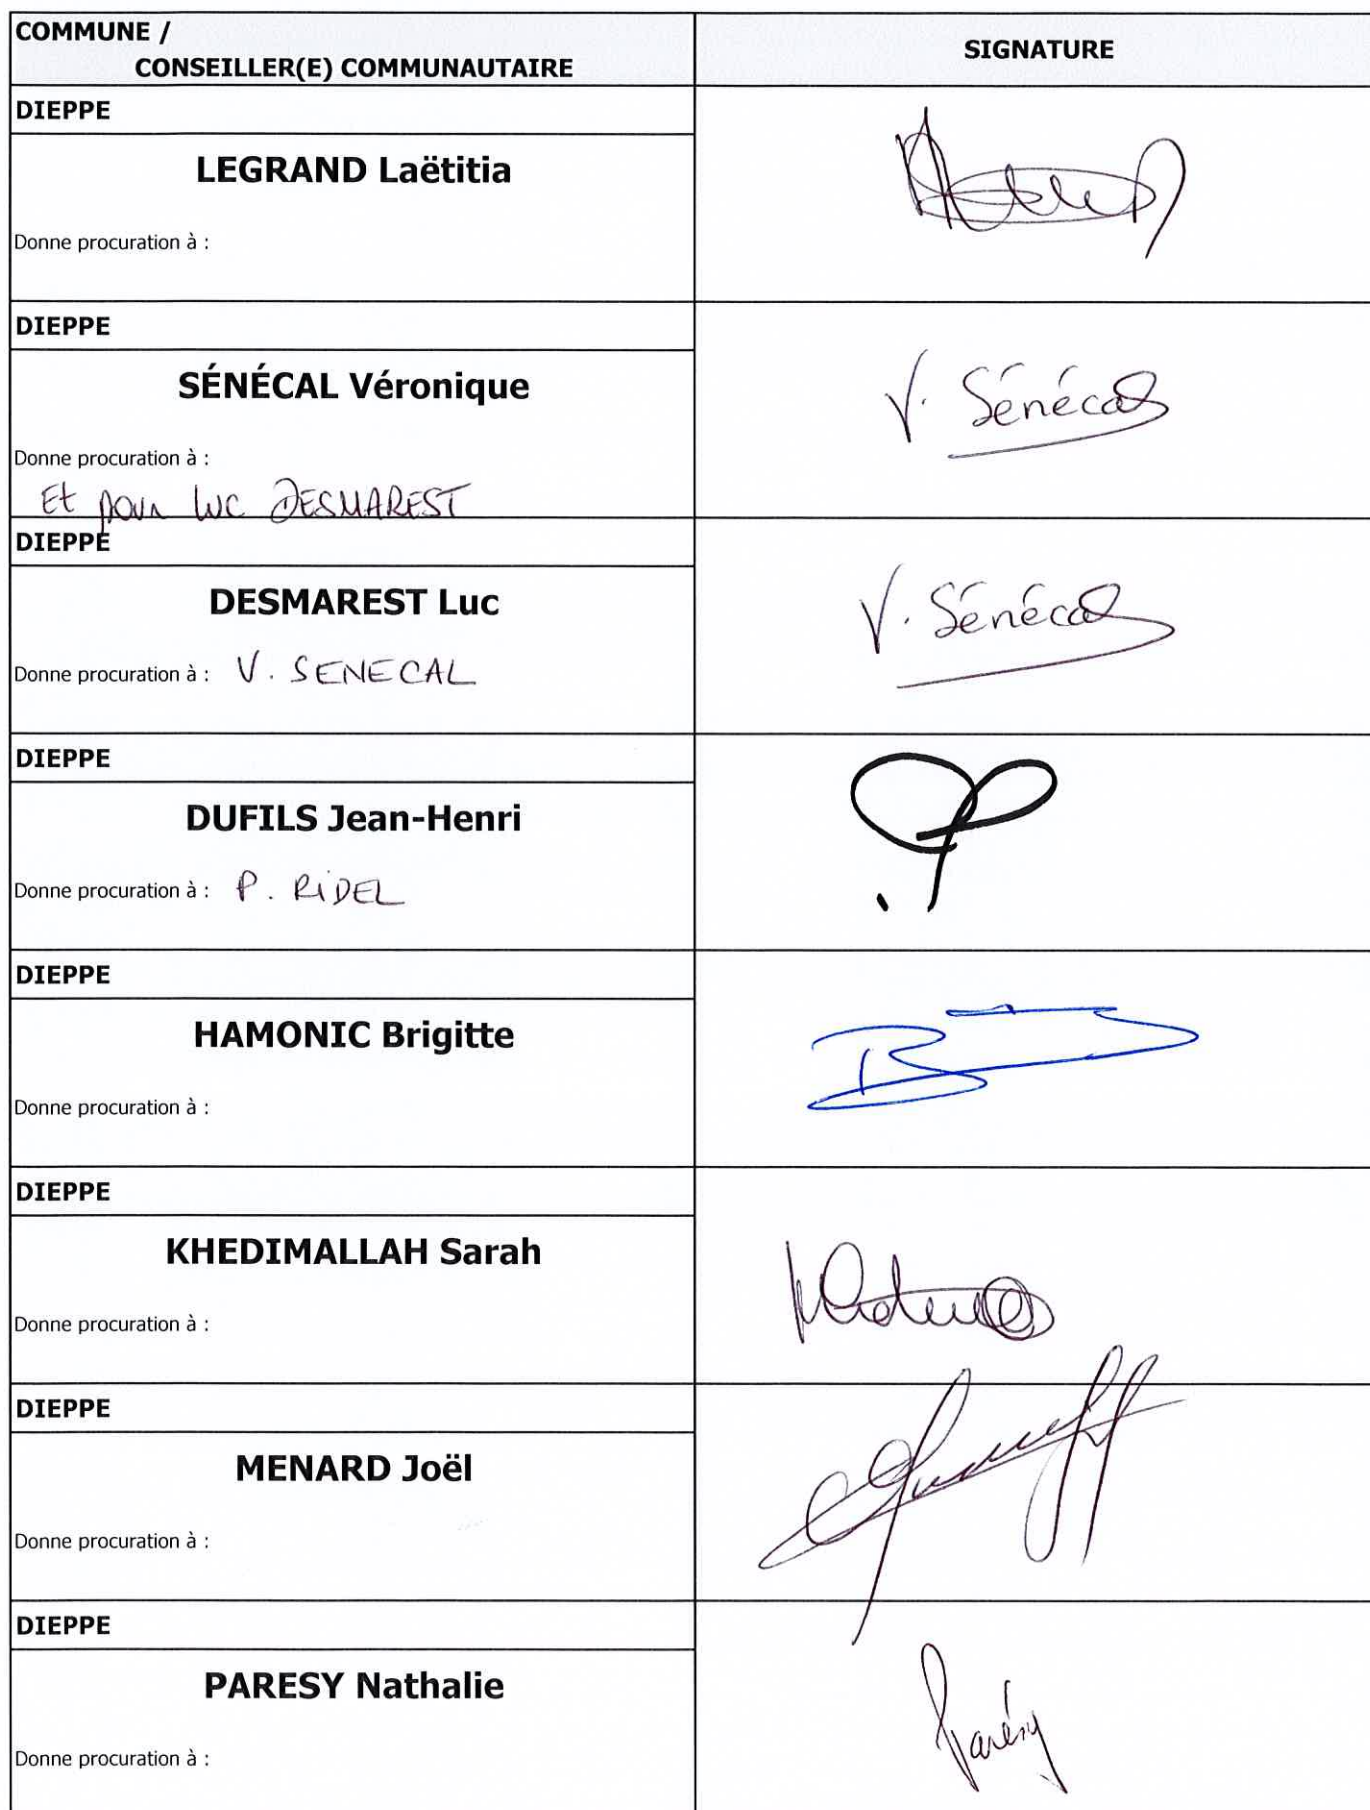 COMMUNE /
CONSEILLER(E) COMMUNAUTAIRE
SIGNATURE
DIEPPE
LEGRAND Laëtitia
Donne procuration à :
DIEPPE
SÉNÉCAL Véronique
V. Sénécal
Donne procuration à :
Et pour LUC DESMAREST
DIEPPE
DESMAREST Luc
V. Sénécal
Donne procuration à : V. SENECAL
DIEPPE
DUFILS Jean-Henri
Donne procuration à : P. RIDEL
DIEPPE
HAMONIC Brigitte
Donne procuration à :
DIEPPE
KHEDIMALLAH Sarah
Donne procuration à :
DIEPPE
MENARD Joël
Donne procuration à :
DIEPPE
PARESY Nathalie
Parésy
Donne procuration à :